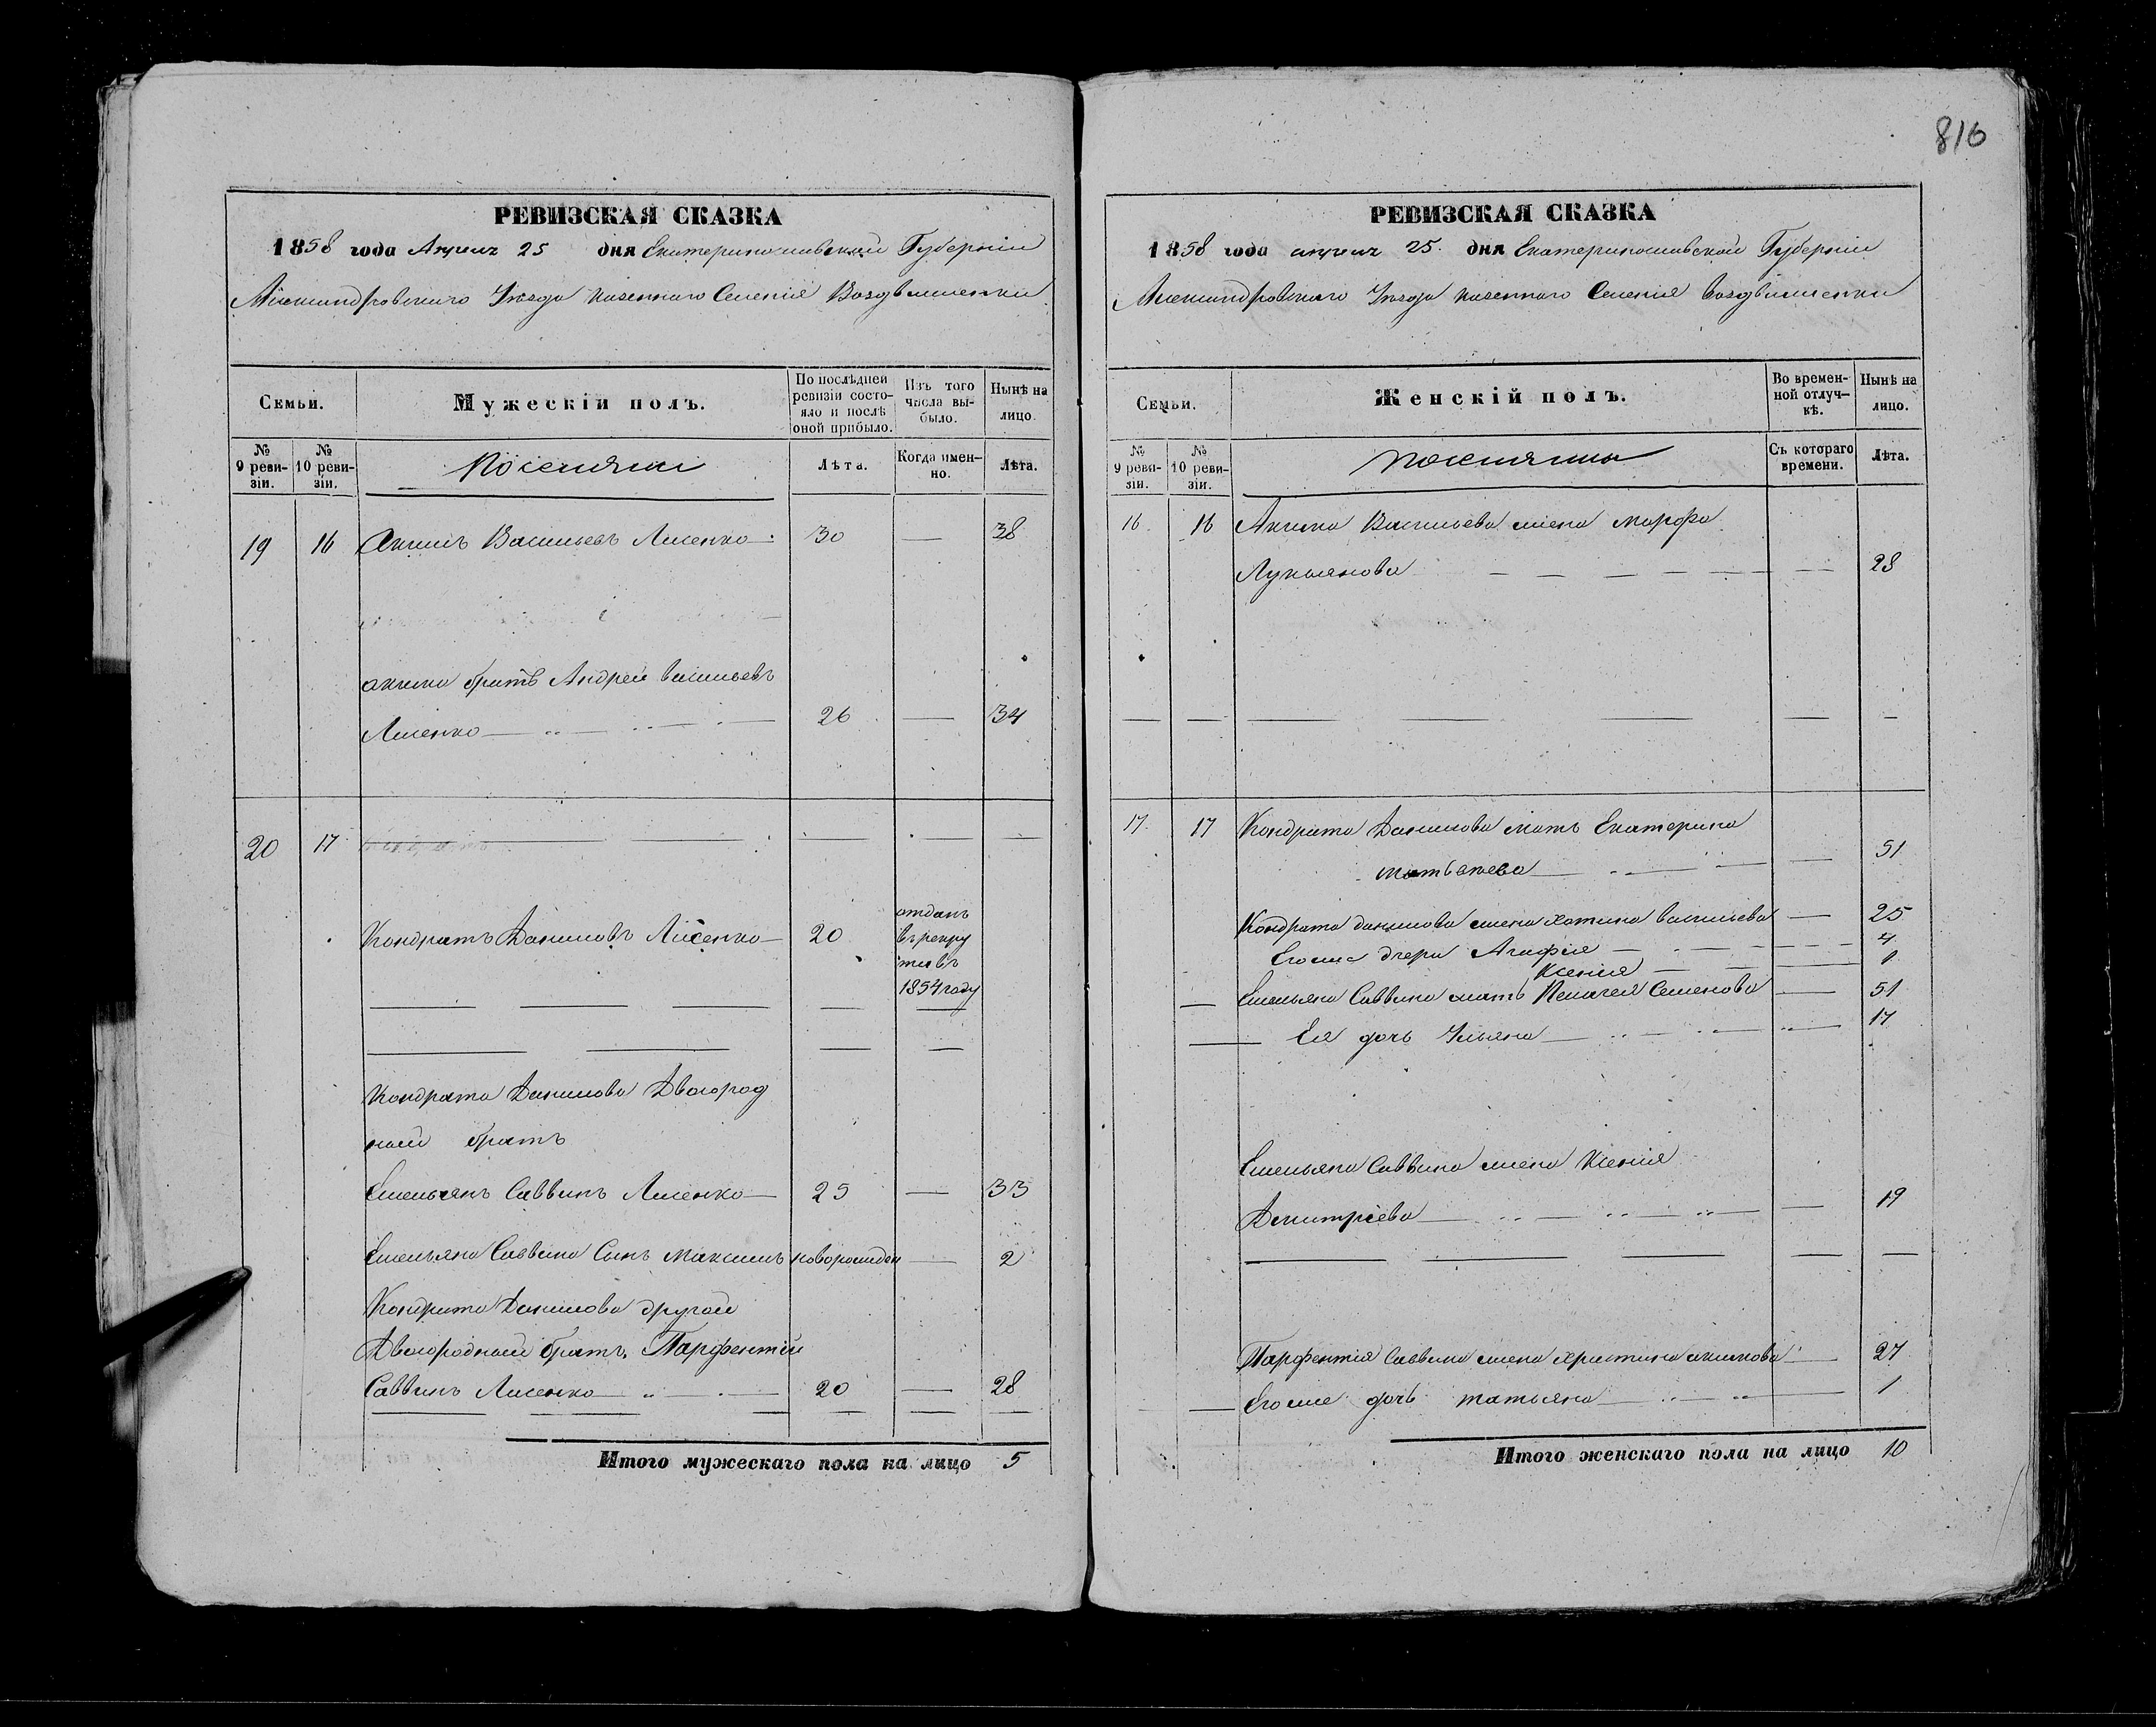 816
РЕВИЗСКАЯ СКАЗКА
1858 года Апреля 25 дня Екатеринославской Губернии
Александровского Уезда казенного Селения Воздвиженки
Семьи.
Мужескій полъ.
По послѣдней ревизіи состояло и послѣ оной прибыло.
Изъ того числа выбыло.
Нынѣ на лицо.
№ 9 ревизіи.
№ 10 ревизіи.
Поселяни
Лѣта.
Когда именно.
Лѣта.
19 16 Акимъ Васильевъ Лисенко 30 — 38
Акима братъ Андрей Васильевъ
Лисенко 26 — 34
20 17
Кондратъ Даниловъ Лисенко 20
отданъ
въ рекру
ты въ
1854 году
Кондрата Данилова Двоюрод
ный братъ
Емельянъ Саввинъ Лисенко 25 — 33
Емельяна Саввина Сынъ Максимъ новорожден — 2
Кондрата Данилова другой
Двоюродный братъ Парфентій
Саввинъ Лисенко 20 — 28
Итого мужескаго пола на лицо 5
РЕВИЗСКАЯ СКАЗКА
1858 года апреля 25 дня Екатеринославской Губернии
Александровского Уезда казенного Селения Воздвиженки
Семьи.
Женскій полъ.
Во временной отлучкѣ.
Нынѣ на лицо.
№ 9 ревизіи.
№ 10 ревизіи.
поселянки
Съ котораго времени.
Лѣта.
16 16 Акима Васильева жена Марфа
Лукьянова — 28
17 17 Кондрата Данилова мать Екатерина
Матвѣева — 51
Кондрата Данилова жена Васильева — 25
Егоже дчери Агафія — 4
Ксенія — 1
Емельяна Саввина мать Пелагея Семенова — 51
Ея дочь Ульяна — 17
Емельяна Саввина жена Ксенія
Дмитріева — 19
Парфентія Саввина жена Христина Акимова — 27
Егоже дочь татьяна — 1
Итого женскаго пола на лицо 10